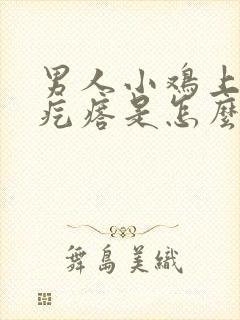 男人小鸡上
疙瘩是怎麼
舞島美織